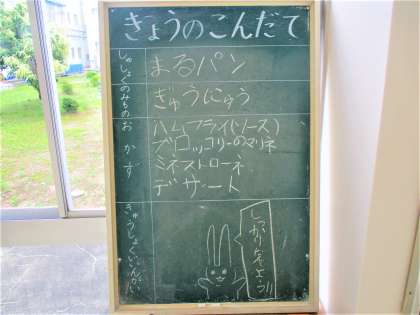 きょうのこんだて
しゅしょく
まるパン
のみもの
ぎゅうにゅう
おかず
ハムフライ(ソース)
ブロッコリーのマリネ
ミネストローネ
デザート
きゅうしょくいいんかい
しっかり